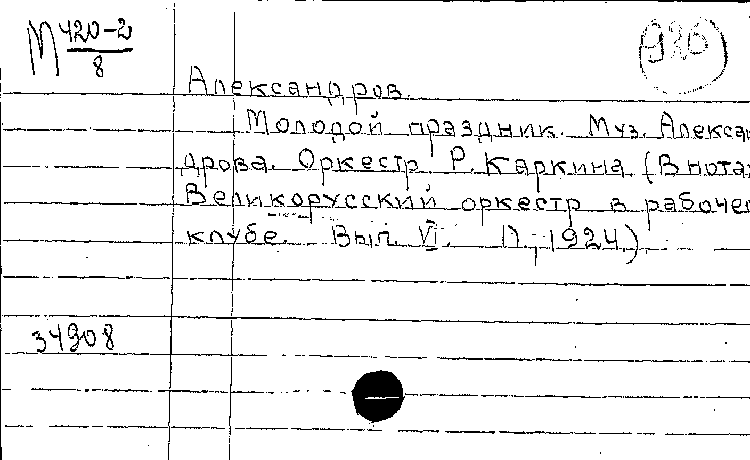 М 420-2
8
920
Александров.
Молодой праздник. Муз. Алекса
дрова. Оркестр. Р. Каркина (В нота
Великорусский оркестр в рабоче
клубе. Вып. VI. П., 1924).
34908